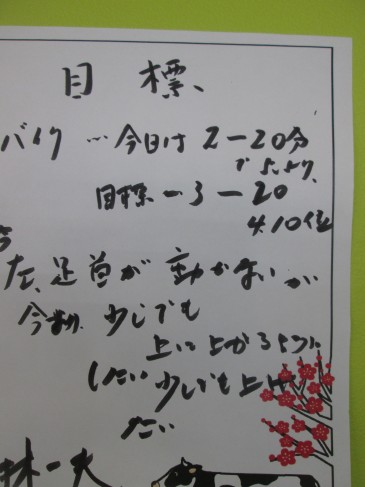 目標、
バイク…今日は2-20分
でちょより、
目標-3-20
4.10位
左、足首が動かないが
今年は、少しでも
上に上がるように
したい少しでも上げ
たい
林一夫